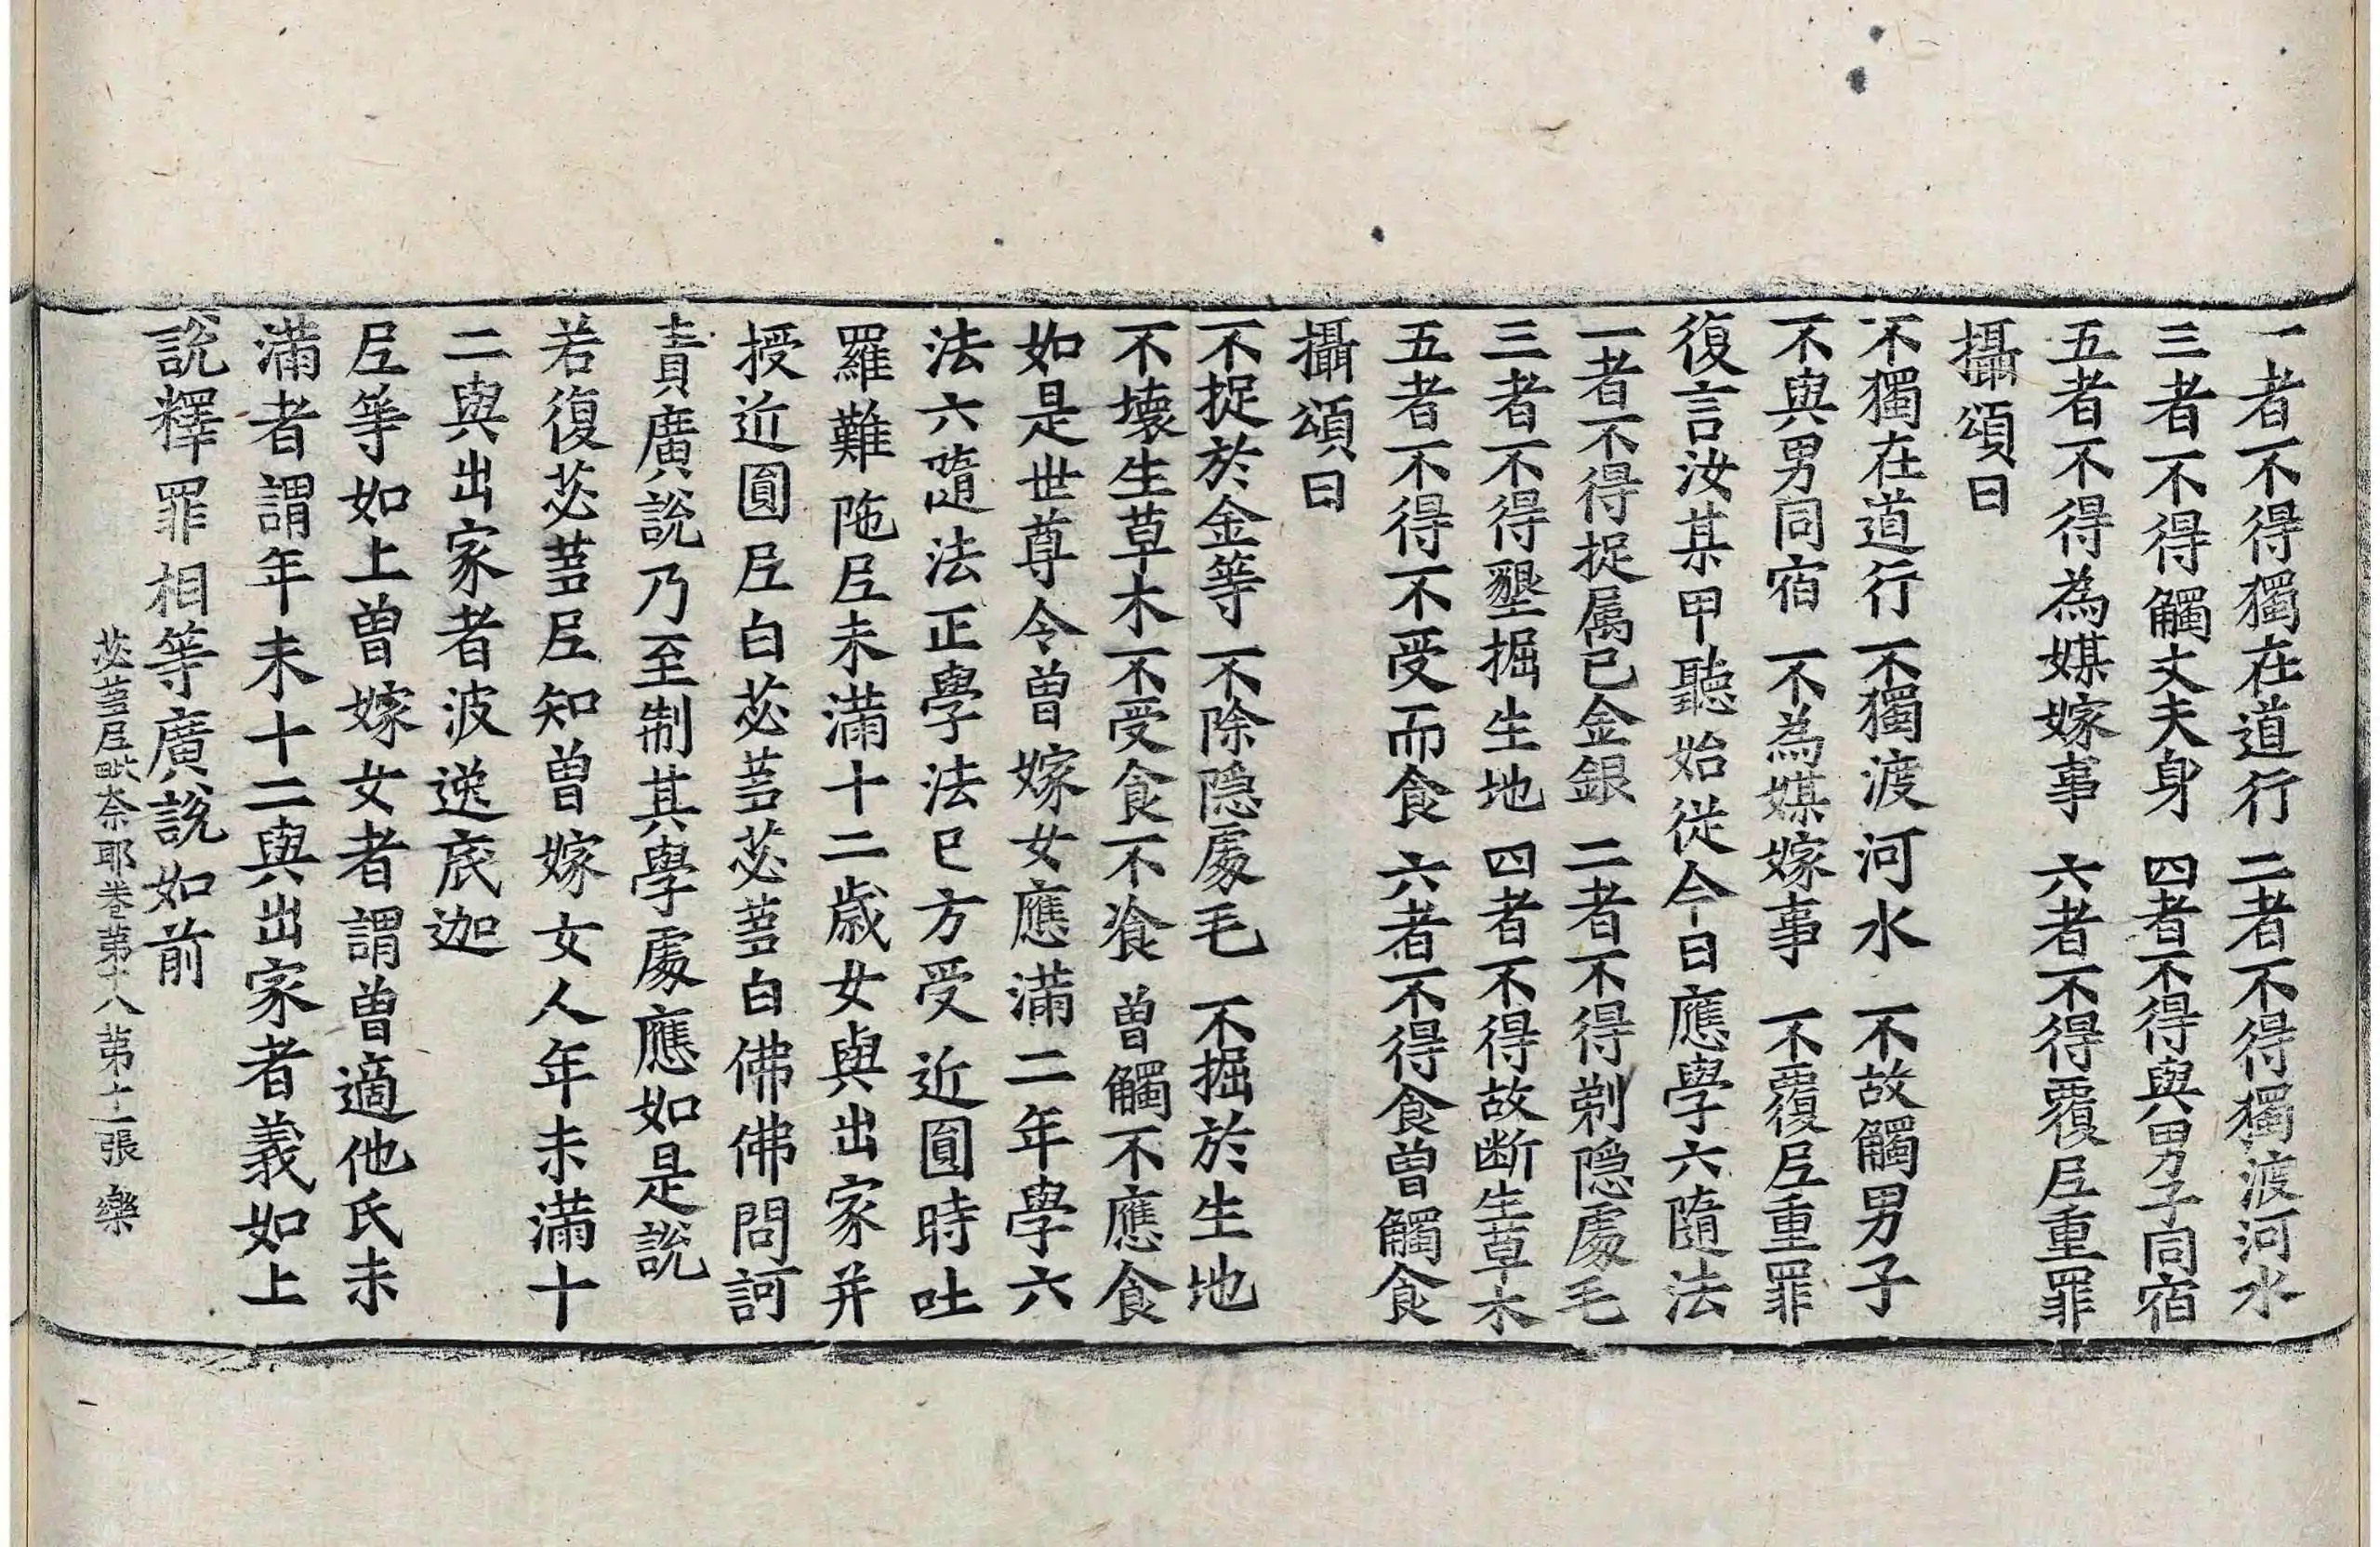 一者不得獨在道行 二者不得獨渡河水
三者不得觸丈夫身 四者不得與男子同宿
五者不得為媒嫁事 六者不得覆𡰱重罪
攝頌曰
不獨在道行 不獨渡河水 不故觸男子
不與男同宿 不為媒嫁事 不覆𡰱重罪
復言汝某甲聽始從今日應學六隨法
一者不得捉属已金銀 二者不得剃隠處毛
三者不得墾掘生地 四者不得故断生草木
五者不得不受而食 六者不得食曾觸食
攝頌曰
不捉於金等 不除隠處毛 不掘於生地
不壞生草木 不受食不飡 曾觸不應食
如是世尊令曾嫁女應滿二年學六
法六隨法正學法已方受近圓時吐
羅難陁𡰱未滿十二歲女與出家并
授近圓𡰱白苾蒭苾蒭白佛佛問訶
責廣說乃至制其學處應如是說
若復苾蒭𡰱知曾嫁女人年未滿十
二與出家者波逸底迦
𡰱等如上曾嫁女者謂曾適他氏未
滿者謂年未十二與出家者義如上
說釋罪相等廣說如前
苾蒭𡰱毗奈耶卷苐十八 苐十一張 樂